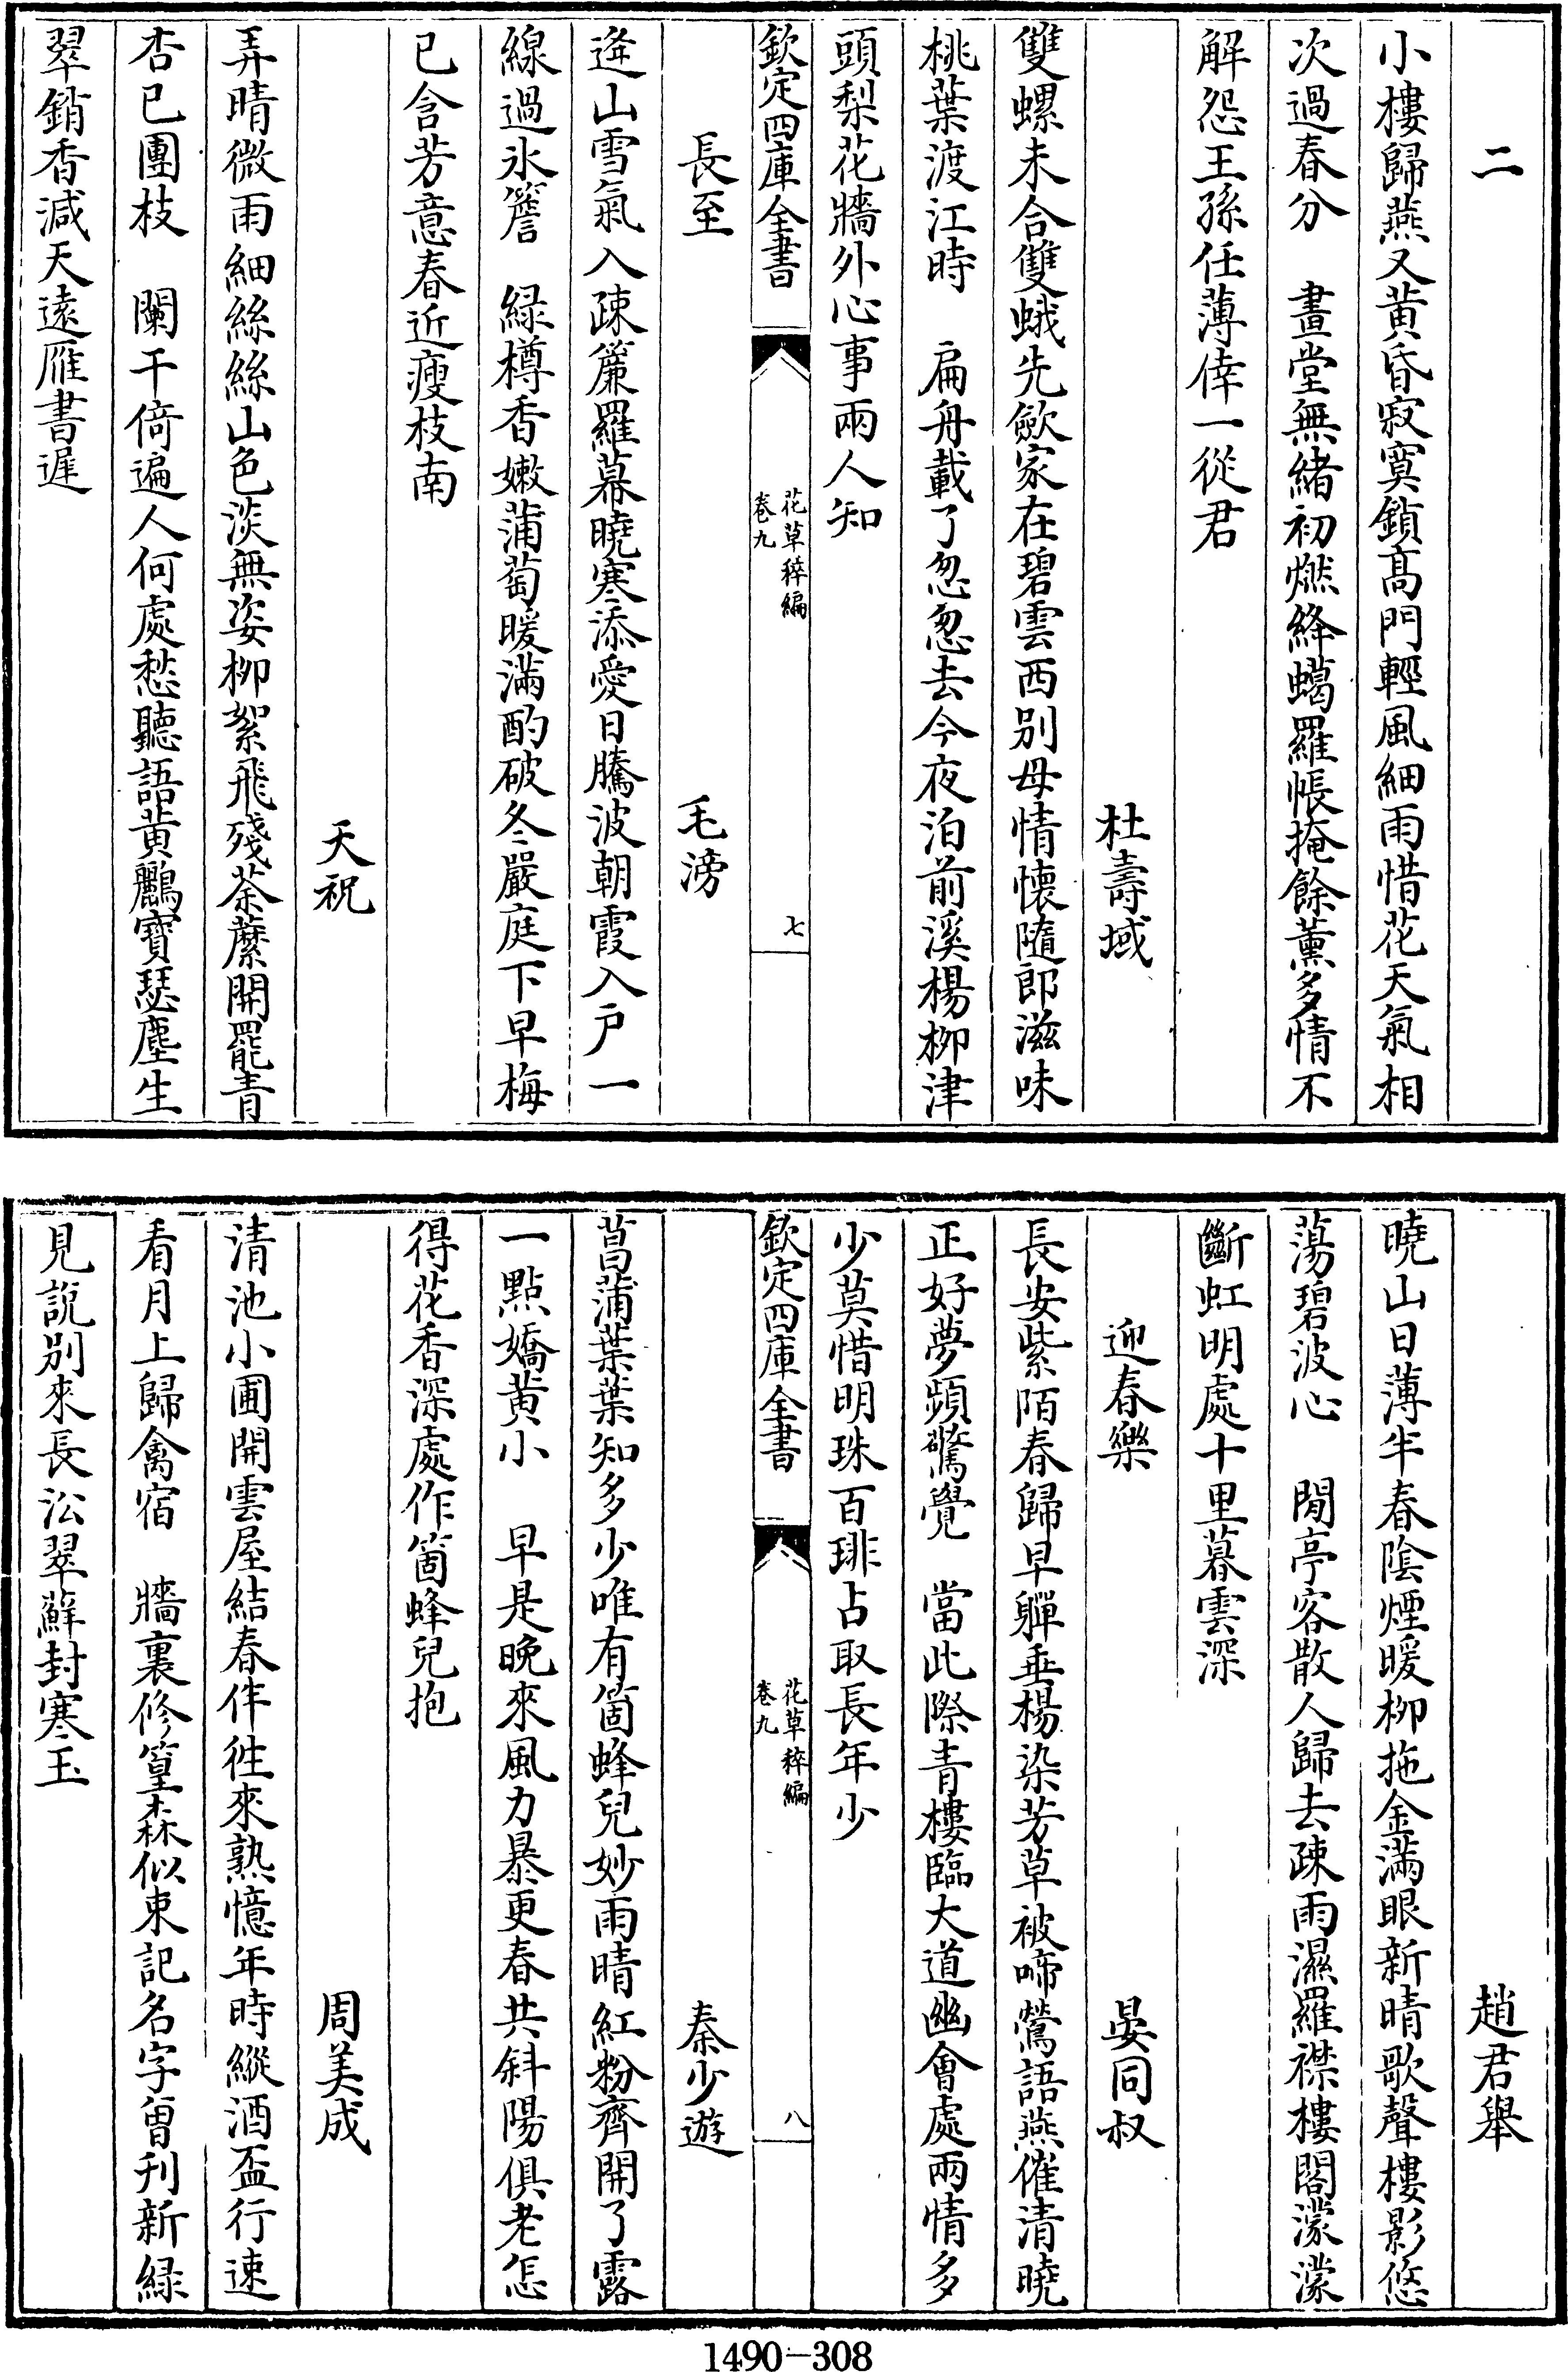 二
小樓歸燕又黄昏寂寞鎖髙門輕風細雨惜花天氣相
次過春分　畫堂無緒初燃絳蠟羅帳掩餘薰多情不
解怨王孫任薄倖一從君
杜壽域
雙螺未合雙蛾先歛家在碧雲西别母情懷隨郎滋味
桃葉渡江時　扁舟載了怱怱去今夜泊前溪楊柳津
頭梨花牆外心事兩人知
欽定四庫全書
花草稡編
卷九
七
長至
毛滂
逄山雪氣入疎簾羅幕曉寒添愛日騰波朝霞入戸一
線過氷簷　緑樽香嫩蒲萄暖滿酌破冬嚴庭下早梅
已含芳意春近瘦枝南
天祝
弄晴微雨細絲絲山色淡無姿柳絮飛殘荼蘼開罷青
杏已團枝　闌干倚遍人何處愁聽語黄鸝寶瑟塵生
翠銷香減天遠雁書遲
趙君舉
曉山日薄半春陰煙暖柳拖金滿眼新晴歌聲樓影悠
蕩碧波心　閒亭客散人歸去疎雨濕羅襟樓閣濛濛
斷虹明處十里暮雲深
迎春樂
晏同叔
長安紫陌春歸早嚲垂楊染芳草被啼鶯語燕催清曉
正好夢頻驚覺　當此際青樓臨大道幽會處兩情多
少莫惜明珠百琲占取長年少
欽定四庫全書
花草稡編
卷九
八
秦少遊
菖蒲葉葉知多少唯有箇蜂兒妙雨晴紅粉齊開了露
一點嬌黄小　早是晚來風力暴更春共斜陽俱老怎
得花香深處作箇蜂兒抱
周美成
清池小圃開雲屋結春伴徃來熟憶年時縱酒盃行速
看月上歸禽宿　牆裏修篁森似束記名字曽刋新緑
見説别來長㳂翠蘚封寒玉
1490-308